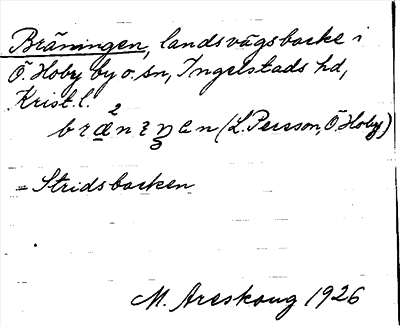 Bräningen, landsvägsbacke i
Ö. Hoby by o. sn, Ingelstads hd,
Krist. l.
(L. Persson, Ö. Hoby)
= Stridsbacken
M. Areskoug 1926